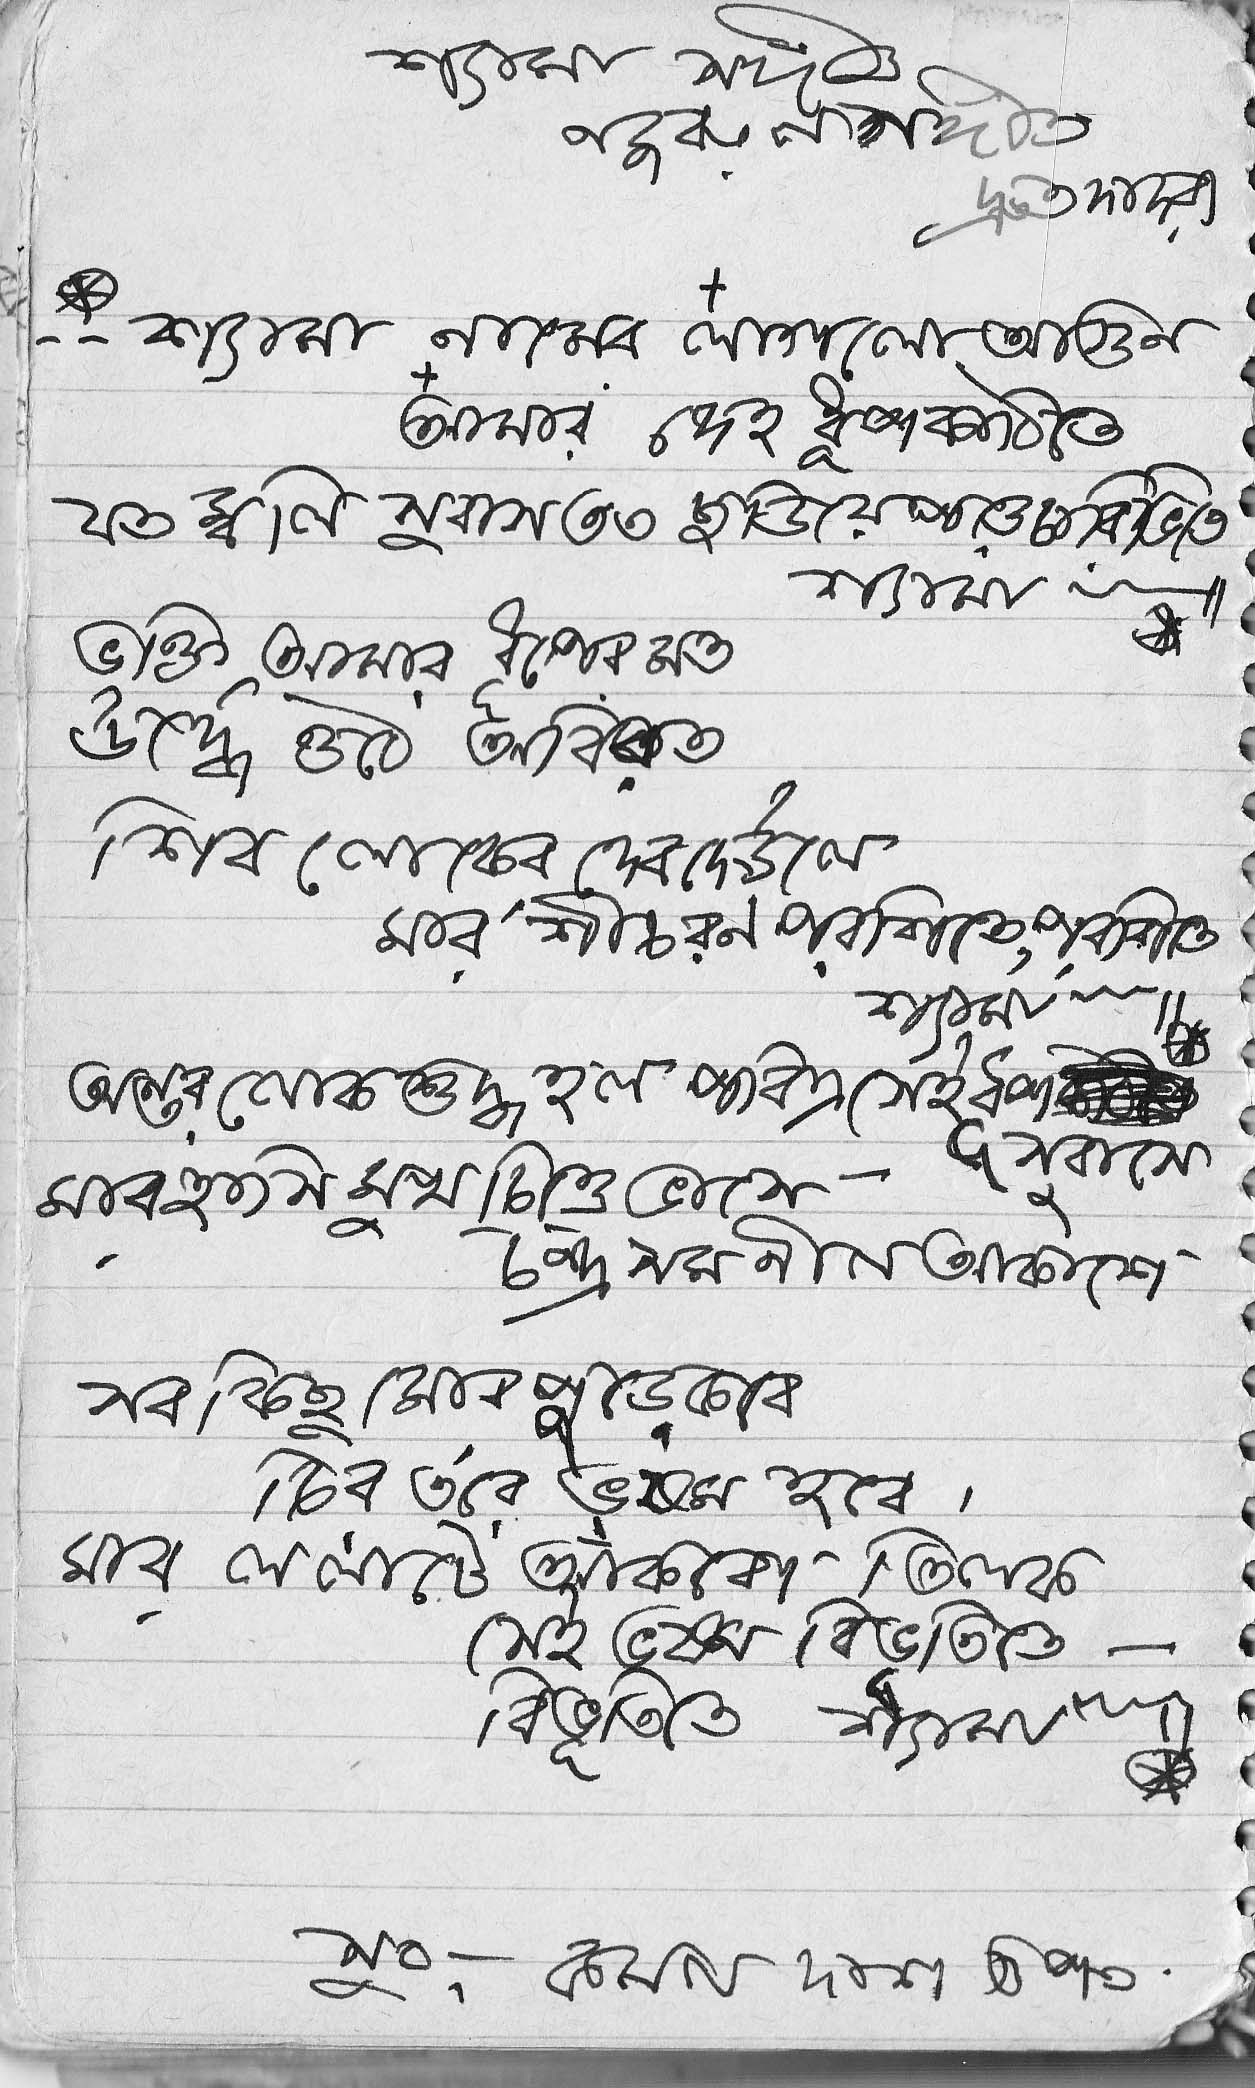 শ্যামা সঙ্গীত
নজরুল সঙ্গীত
দ্রুত দাদরা
শ্যামা নামের লাগলো আগুন
আমার দেহ ধূপ কাঠিতে
যত জ্বলি সুবাস তত ছড়িয়ে পড়ে চারিভিতে
শ্যামা
ভক্তি আমার ধূপের মত
উর্দ্ধে ওঠে অবিরত
শিব লোকের দেব দেউলে
মার শ্রীচরণ পরশিতে, পরশিতে
শ্যামা
অন্তর লোক শুদ্ধ হল পবিত্র সেই ধূপ
সুবাসে
মার হাসি মুখ চিত্তে ভাসে –
চন্দ্রসম নীল আকাশে
সব কিছু মোর পুড়ে কবে
চির তরে ভষ্ম হবে ।
মার ললাটে আঁকবো তিলক
সেই ভষ্ম বিভূতিতে –
বিভূতিতে শ্যামা
সুর :– কমল দাশ গুপ্ত .